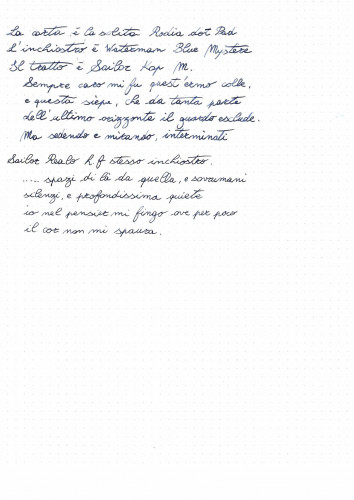 La carta è la solita Rodia dot Pad
L'inchiostro è Waterman Blue Mystere
Il tratto è Sailor Kop M.
Sempre caro mi fu quest'ermo colle,
e questa siepe, che da tanta parte
dell'ultimo orizzonte il guardo esclude.
Ma sedendo e mirando, interminati
Sailor Realo H F stesso inchiostro.
..... spazi di là da quella, e sovrumani
silenzi, e profondissima quiete
io nel pensier mi fingo ove per poco
il cor non mi spaura.